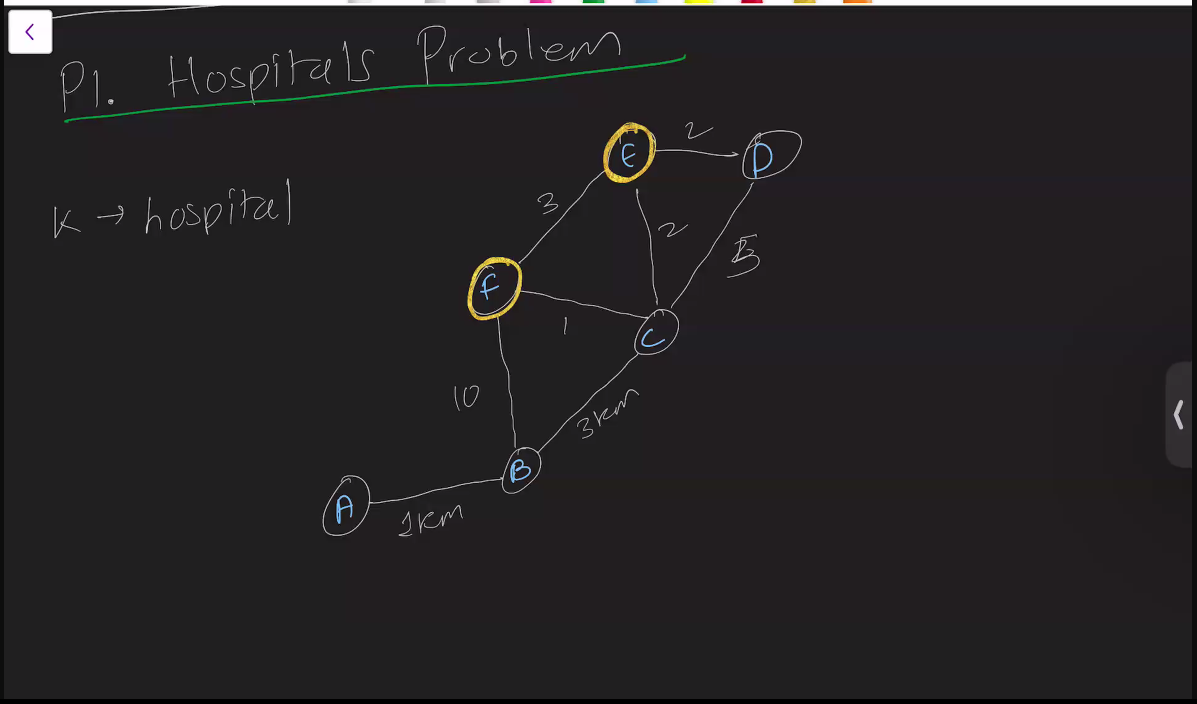 P1. Hospitals Problem
K → hospital
E
2
D
3
2
5
F
1
C
10
3km
B
A
1km